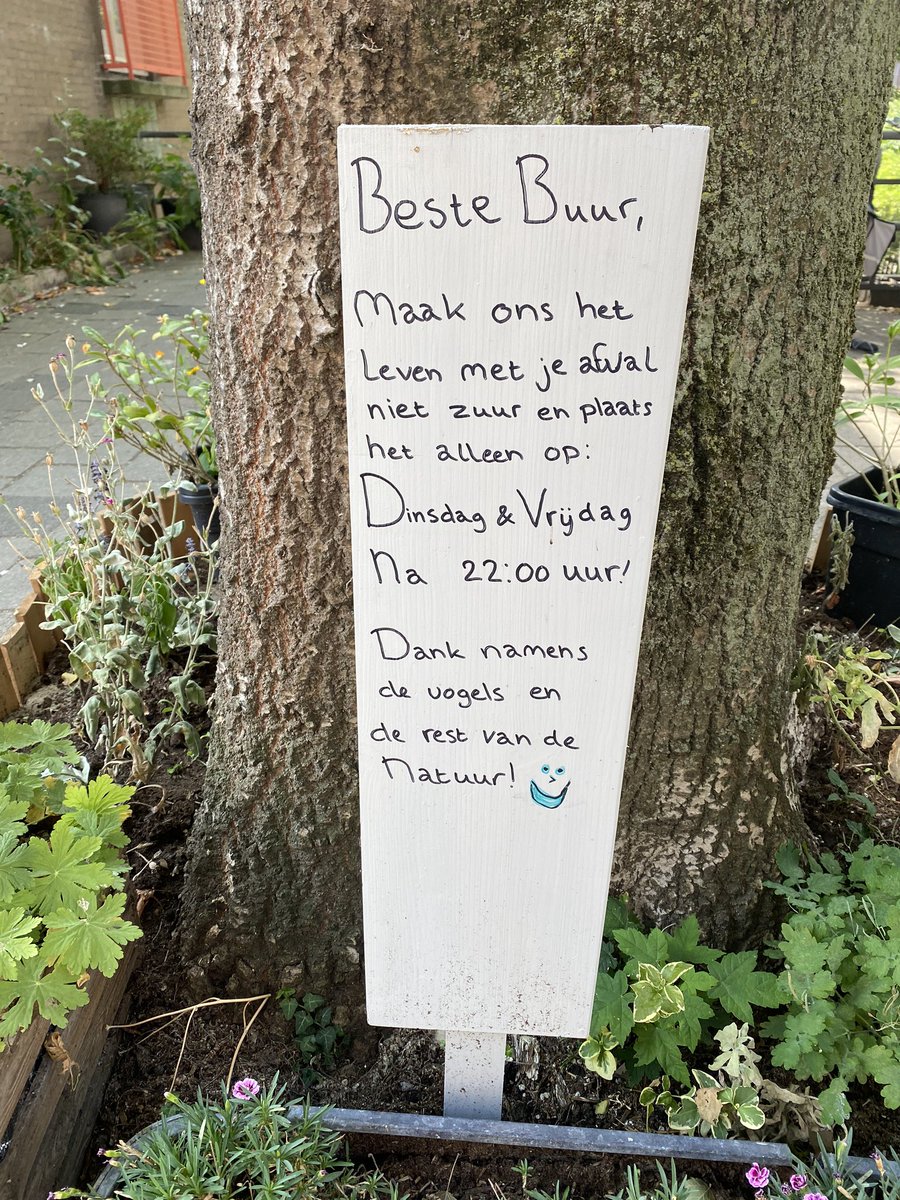 Beste Buur,
Maak ons het
Leven met je afval
niet zuur en plaats
het alleen op:
Dinsdag & Vrijdag
Na 22:00 uur!
Dank namens
de vogels en
de rest van de
Natuur!